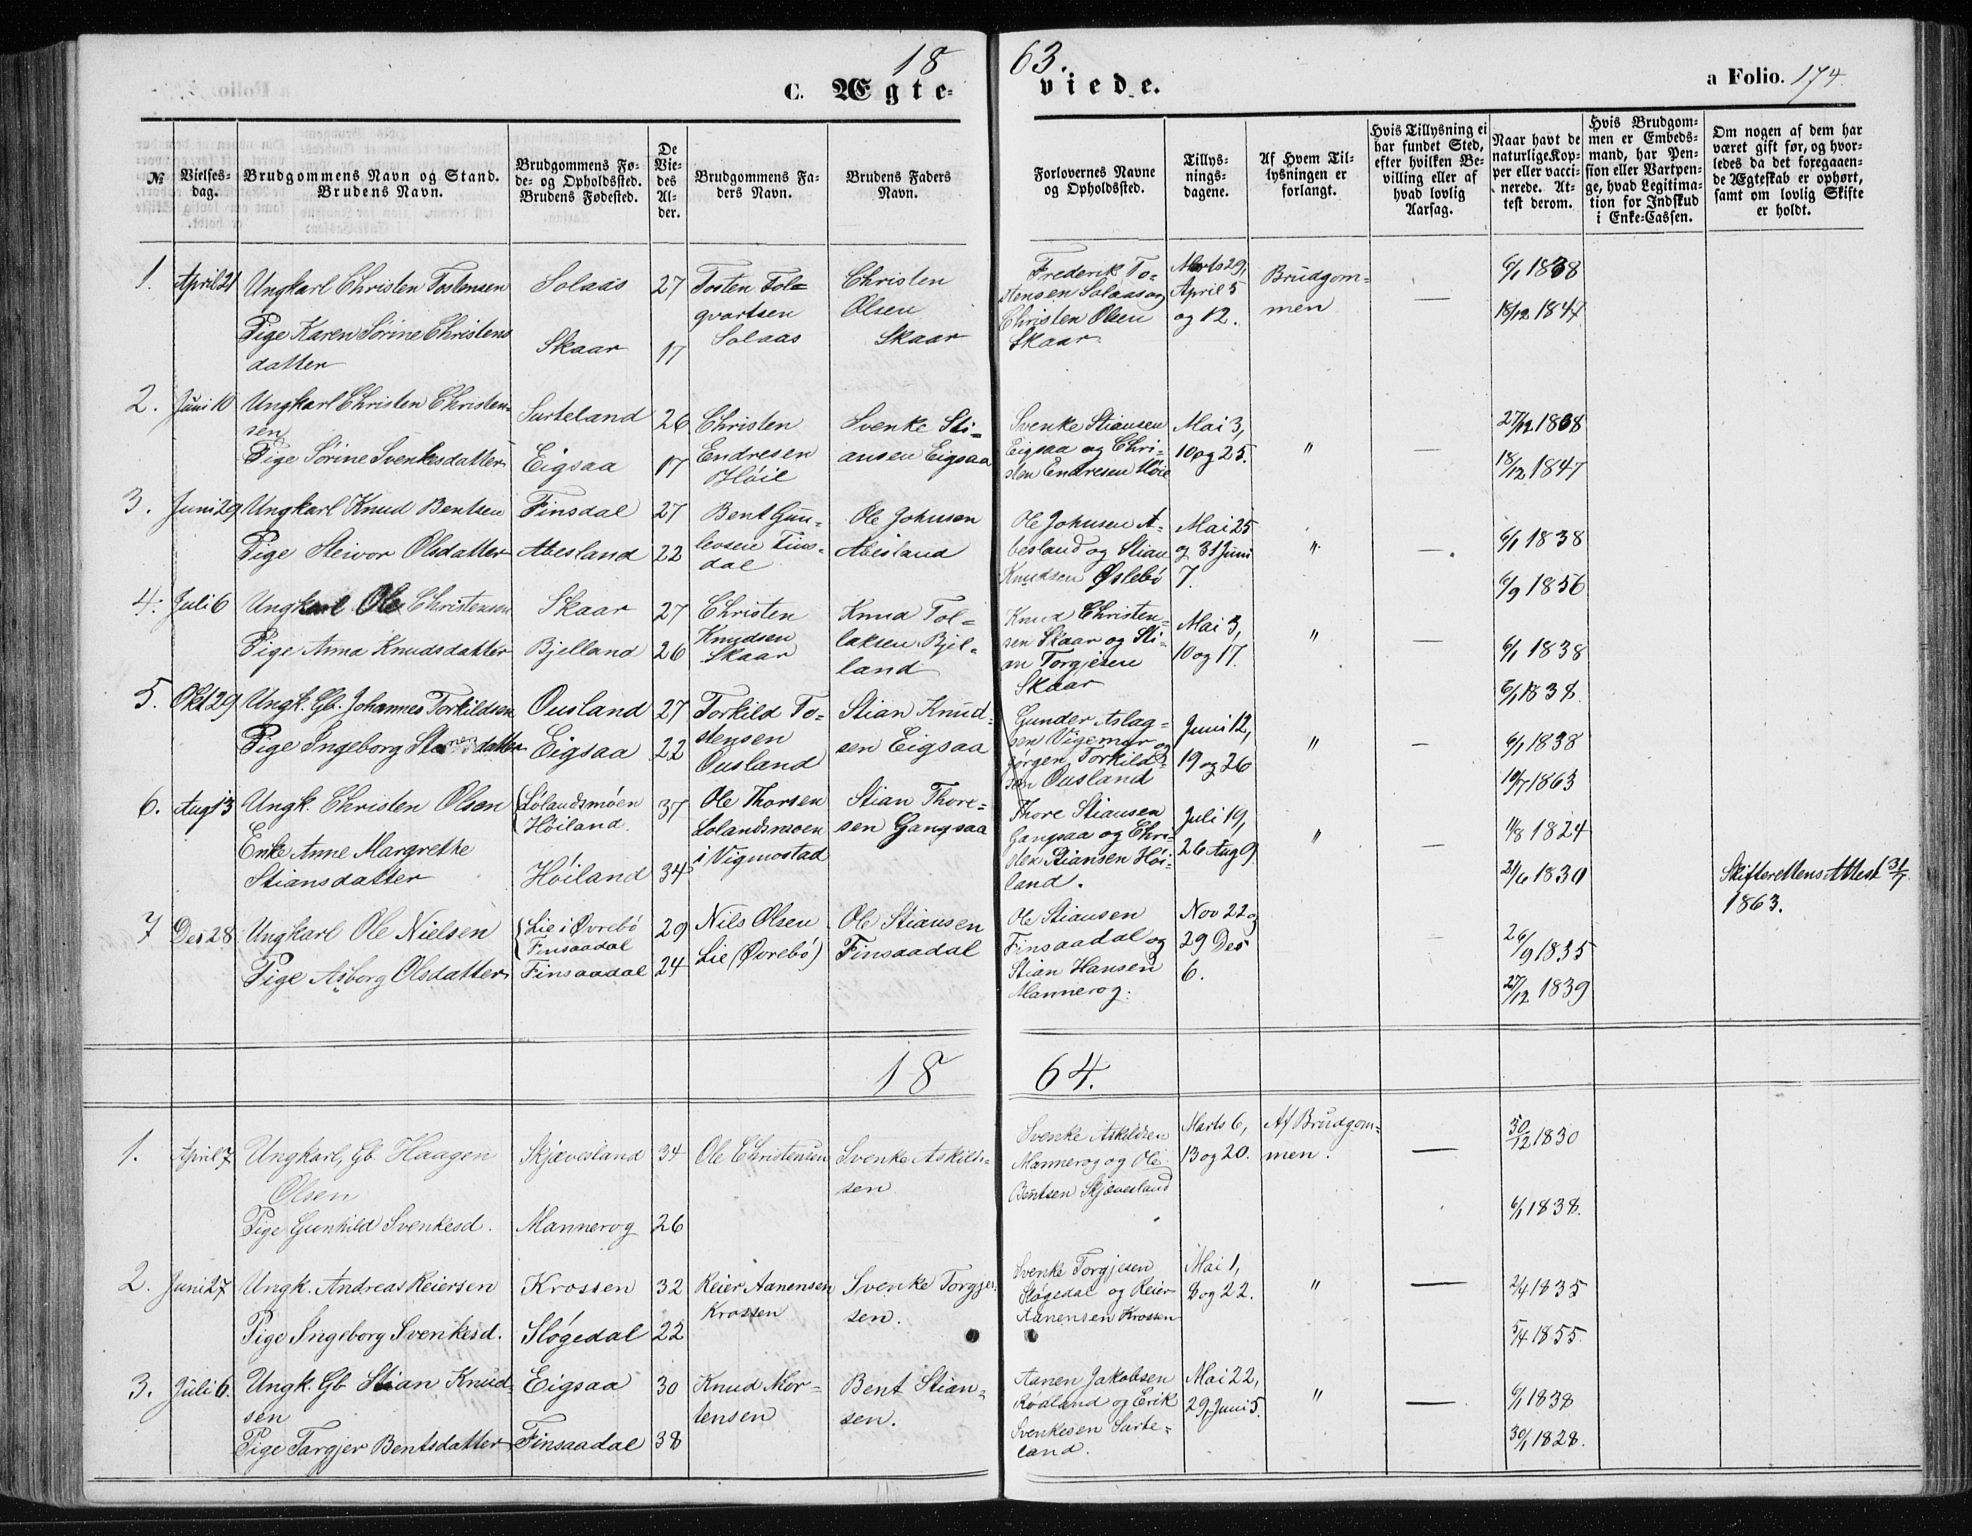 18 63.
C. Ægte- viede. a Folio. 174.
№
Vielses-
dag.
Brudgommens Navn og Stand.
Brudens Navn.
Brudgommens Fø-
de- og Opholdssted.
Brudens Fødested.
De
Vie-
des
Al-
der.
Brudgommens Fa-
ders Navn.
Brudens Faders
Navn.
Forlovernes Navne
og Opholdssted.
Tillys-
nings-
dagene.
Af Hvem Til-
lysningen er
forlangt.
Hvis Tillysning ei
har fundet Sted,
efter hvilken Be-
villing eller af
hvad lovlig
Aarsag.
Naar havt de
naturlige Kop-
per eller vacci-
nerede. At-
test derom.
Hvis Brudgom-
men er Embeds-
mand, har Pen-
sion eller Vartpen-
ge, hvad Legitima-
tion for Indskud
i Enke-Cassen.
Om nogen af dem har
været gift før, og hvor-
ledes da det foregaaen-
de Ægteskab er ophørt,
samt om lovlig Skifte
er holdt.
1. April 21 Ungkarl Christen Tostensen
Pige Karen Sørine Christens
datter
Solaas
Skaar
27
17
Tosten Tol-
qvartsen
Solaas
Christen
Olsen
Skaar
Frederik To-
stensen Solaas og
Christen Olsen
Skaar
Marts 29,
April 5
og 12.
Brudgom-
men
—
6/1 1838
18/12 1847
2. Juni 10 Ungkarl Christen Christen-
sen
Pige Sørine Svenkesdatter
Sarteland
Eigsaa
26
17
Christen
Endresen
Høie
Svenke Sti-
ansen Eigsaa
Svenke Stiansen
Eigsaa og Chri-
sten Endresen Høie
Mai 3,
10 og 25.
"
—
27/12 1838
18/12 1847
3. Juni 29 Ungkarl Knud Bentsen
Pige Steivor Olsdatter
Finsdal
Abesland
27
22
Bent Gun-
levsen Fins-
dal
Ole Johnsen
Abesland
Ole Johnsen A-
besland og Stian
Knudsen Øslebø
Mai 25
og 31 Juni
7.
"
—
6/1 1838
6/9 1856
4. Juli 6 Ungkarl Ole Christensen
Pige Anna Knudsdatter
Skaar
Bjelland
27
26
Christen
Knudsen
Skaar
Knud Tol-
laksen Bjel-
land
Knud Christen-
sen Skaar og Sti-
an Torgjesen
Skaar
Mai 3,
10 og 17.
"
—
6/1 1838
6/1 1838.
5. Okt 29 Ungk. Gb. Johannes Torkildsen
Pige Ingeborg Stiansdatter
Ousland
Eigsaa
27
22
Torkild To-
stensen
Ousland
Stian Knud-
sen Eigsaa
Gunder Aslag-
sen Vigemyr og
Jørgen Torkild-
sen Ousland
Juni 12,
19 og 26
"
—
6/1 1838
10/7 1863
6. Aug 13 Ungk. Christen Olsen
Enke Anne Margrethe
Stiansdatter
Lolandsmøen
Høiland.
Høiland
37
34
Ole Thorsen
Lolandsmoen
i Vigmostad
Stian Thore-
sen Gangsaa
Thore Stiansen
Gangsaa og Chri-
sten Stiansen Høi-
land.
Juli 19,
26 Aug 9
"
—
11/8 1824
21/6 1830
Skifterettens Attest 31/7
1863.
7 Des 28 Ungkarl Ole Nielsen
Pige Asborg Olsdatter
Lie i Øvrebø
Finsaadal
Finsaadal
29
24
Nils Olsen
Lie (Øvrebø)
Ole Stiansen
Finsaadal
Ole Stiansen
Finsaadal og
Stian Hansen
Mannerog.
Nov 22 og
29 Des
6.
26/9 1835
27/12 1839
18 64.
1. April 7 Ungkarl, Gb. Haagen
Olsen
Pige Gunhild Svenkesd.
Skjævesland
Mannerog
34
26
Ole Christensen
Svenke Askild-
sen
Svenke Askildsen
Mannerog og Ole
Bentsen Skjævesland
Marts 6,
13 og 20.
Af Brudgom-
men.
—
30/12 1830
6/1 1838.
2. Juni 27 Ungk. Andreas Reiersen
Pige Ingeborg Svenkesd.
Krossen
Sløgedal
32
22
Reier Aanensen
Krossen
Svenke Torgje-
sen.
Svenke Torgjesen
Sløgedal og Reier
Aanensen Krossen
Mai 1,
8 og 22.
"
—
2/4 1835
5/4 1855.
3. Juli 6. Ungk. Gb Stian Knud-
sen
Pige Targjer Bentsdatter
Eigsaa
Finsaadal
30
38
Knud Mor-
tensen
Bent Stian-
sen.
Aanen Jakobsen
Røaland og Erik
Svenkesen Sarte-
land.
Mai 22,
29, Juni 5.
"
—
6/1 1838
30/1 1828.